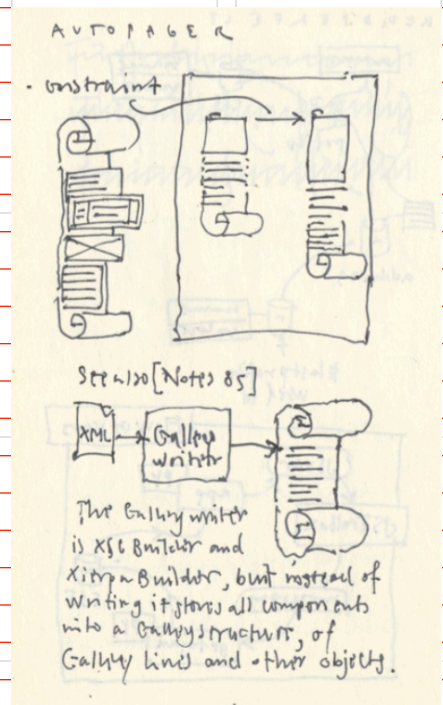 AUTOPAGER
constraint
See also [Notes 85]
XML
Galley
writer
The Galleywriter
is XSL Builder and
XierpaBuilder, but instead of
writing it stores all components
into a Galleystructure, of
Galley lines and other objects.